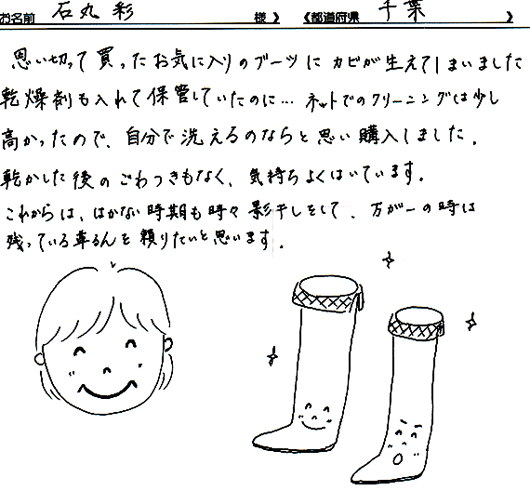 お名前 石丸 彩 様 》 《都道府県 千葉 》
思い切って買ったお気に入りのブーツにカビが生えてしまいました
乾燥剤も入れて保管していたのに… ネットでのクリーニングは少し
高かったので、自分で洗えるのならと思い購入しました。
乾かした後のごわつきもなく、気持ちよくはいています。
これからは、はかない時期も時々影干しをして、万が一の時は
残っている革るんを頼りたいと思います。